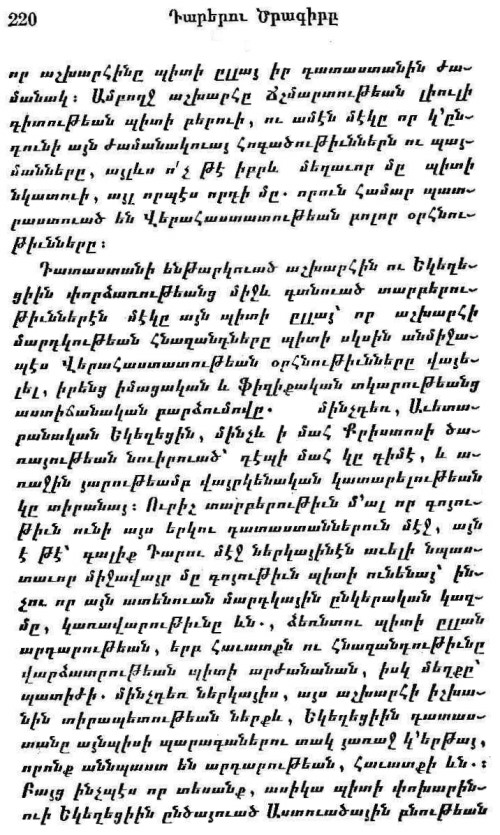 220
Դարերու Ծրագիրը
որ աշխարհինը պիտի ըլլայ իր դատաստանին ժա–
մանակ։ Ամբողջ աշխարհը Ճշմարտութեան լիուլի
գիտութեան պիտի բերուի, ու ամէն մէկը որ կ՚ըն–
դունի այն ժամանակուայ Հոգածութիւններն ու պայ–
մանները, այլևս ո՛չ թէ իբրև մեղաւոր մը պիտի
նկատուի, այլ որպէս որդի մը. որուն համար պատ–
րաստուած են Վերահաստատութեան բոլոր օրհնու–
թիւնները։
Դատաստանի ենթարկուած աշխարհին ու Եկեղե–
ցիին փորձառութեանց միջև գտնուած տարբերու–
թիւններէն մէկը այն պիտի ըլլայ՝ որ աշխարհի
մարդկութեան Հնազանդները պիտի սկսին անմիջա–
պէս Վերահաստատութեան օրհնութիւնները վայե–
լել, իրենց իմացական և ֆիզիքական տկարութեանց
աստիճանական բարձումովը. մինչդեռ, Աւետա–
րանական Եկեղեցին, մինչև ի մահ Քրիստոսի ծա–
ռայութեան նուիրուած՝ դէպի մահ կը դիմէ, և ա–
ռաջին յարութեամբ վայրկենական կատարելութեան
կը տիրանայ։ Ուրիշ տարբերութիւն մ՚ալ որ գոյու–
թիւն ունի այս երկու դատաստաններուն մէջ, այն
է թէ՝ գալիք Դարու մէջ ներկայինէն աւելի նպաս–
տաւոր միջավայր մը գոյութիւն պիտի ունենայ՝ ին–
չու որ այն ատենուան մարդկային ընկերական կազ–
մը, կառավարութիւնը ևն., ձեռնտու պիտի ըլլան
արդարութեան, երբ Հաւատքն ու Հնազանդութիւնը
վարձատրութեան պիտի արժանանան, իսկ մեղքը՝
պատիժի. մինչդեռ ներկայիս, այս աշխարհի իշխա–
նին տիրապետութեան ներքև, Եկեղեցիին դատաս–
տանը այնպիսի պարագաներու տակ յառաջ կ՚երթայ,
որոնք աննպաստ են արդարութեան, Հաւատքի ևն.։
Բայց ինչպէս որ տեսանք, ասիկա պիտի փոխարին–
ուի Եկեղեցիին ընծայուած Աստուածային բնութեան